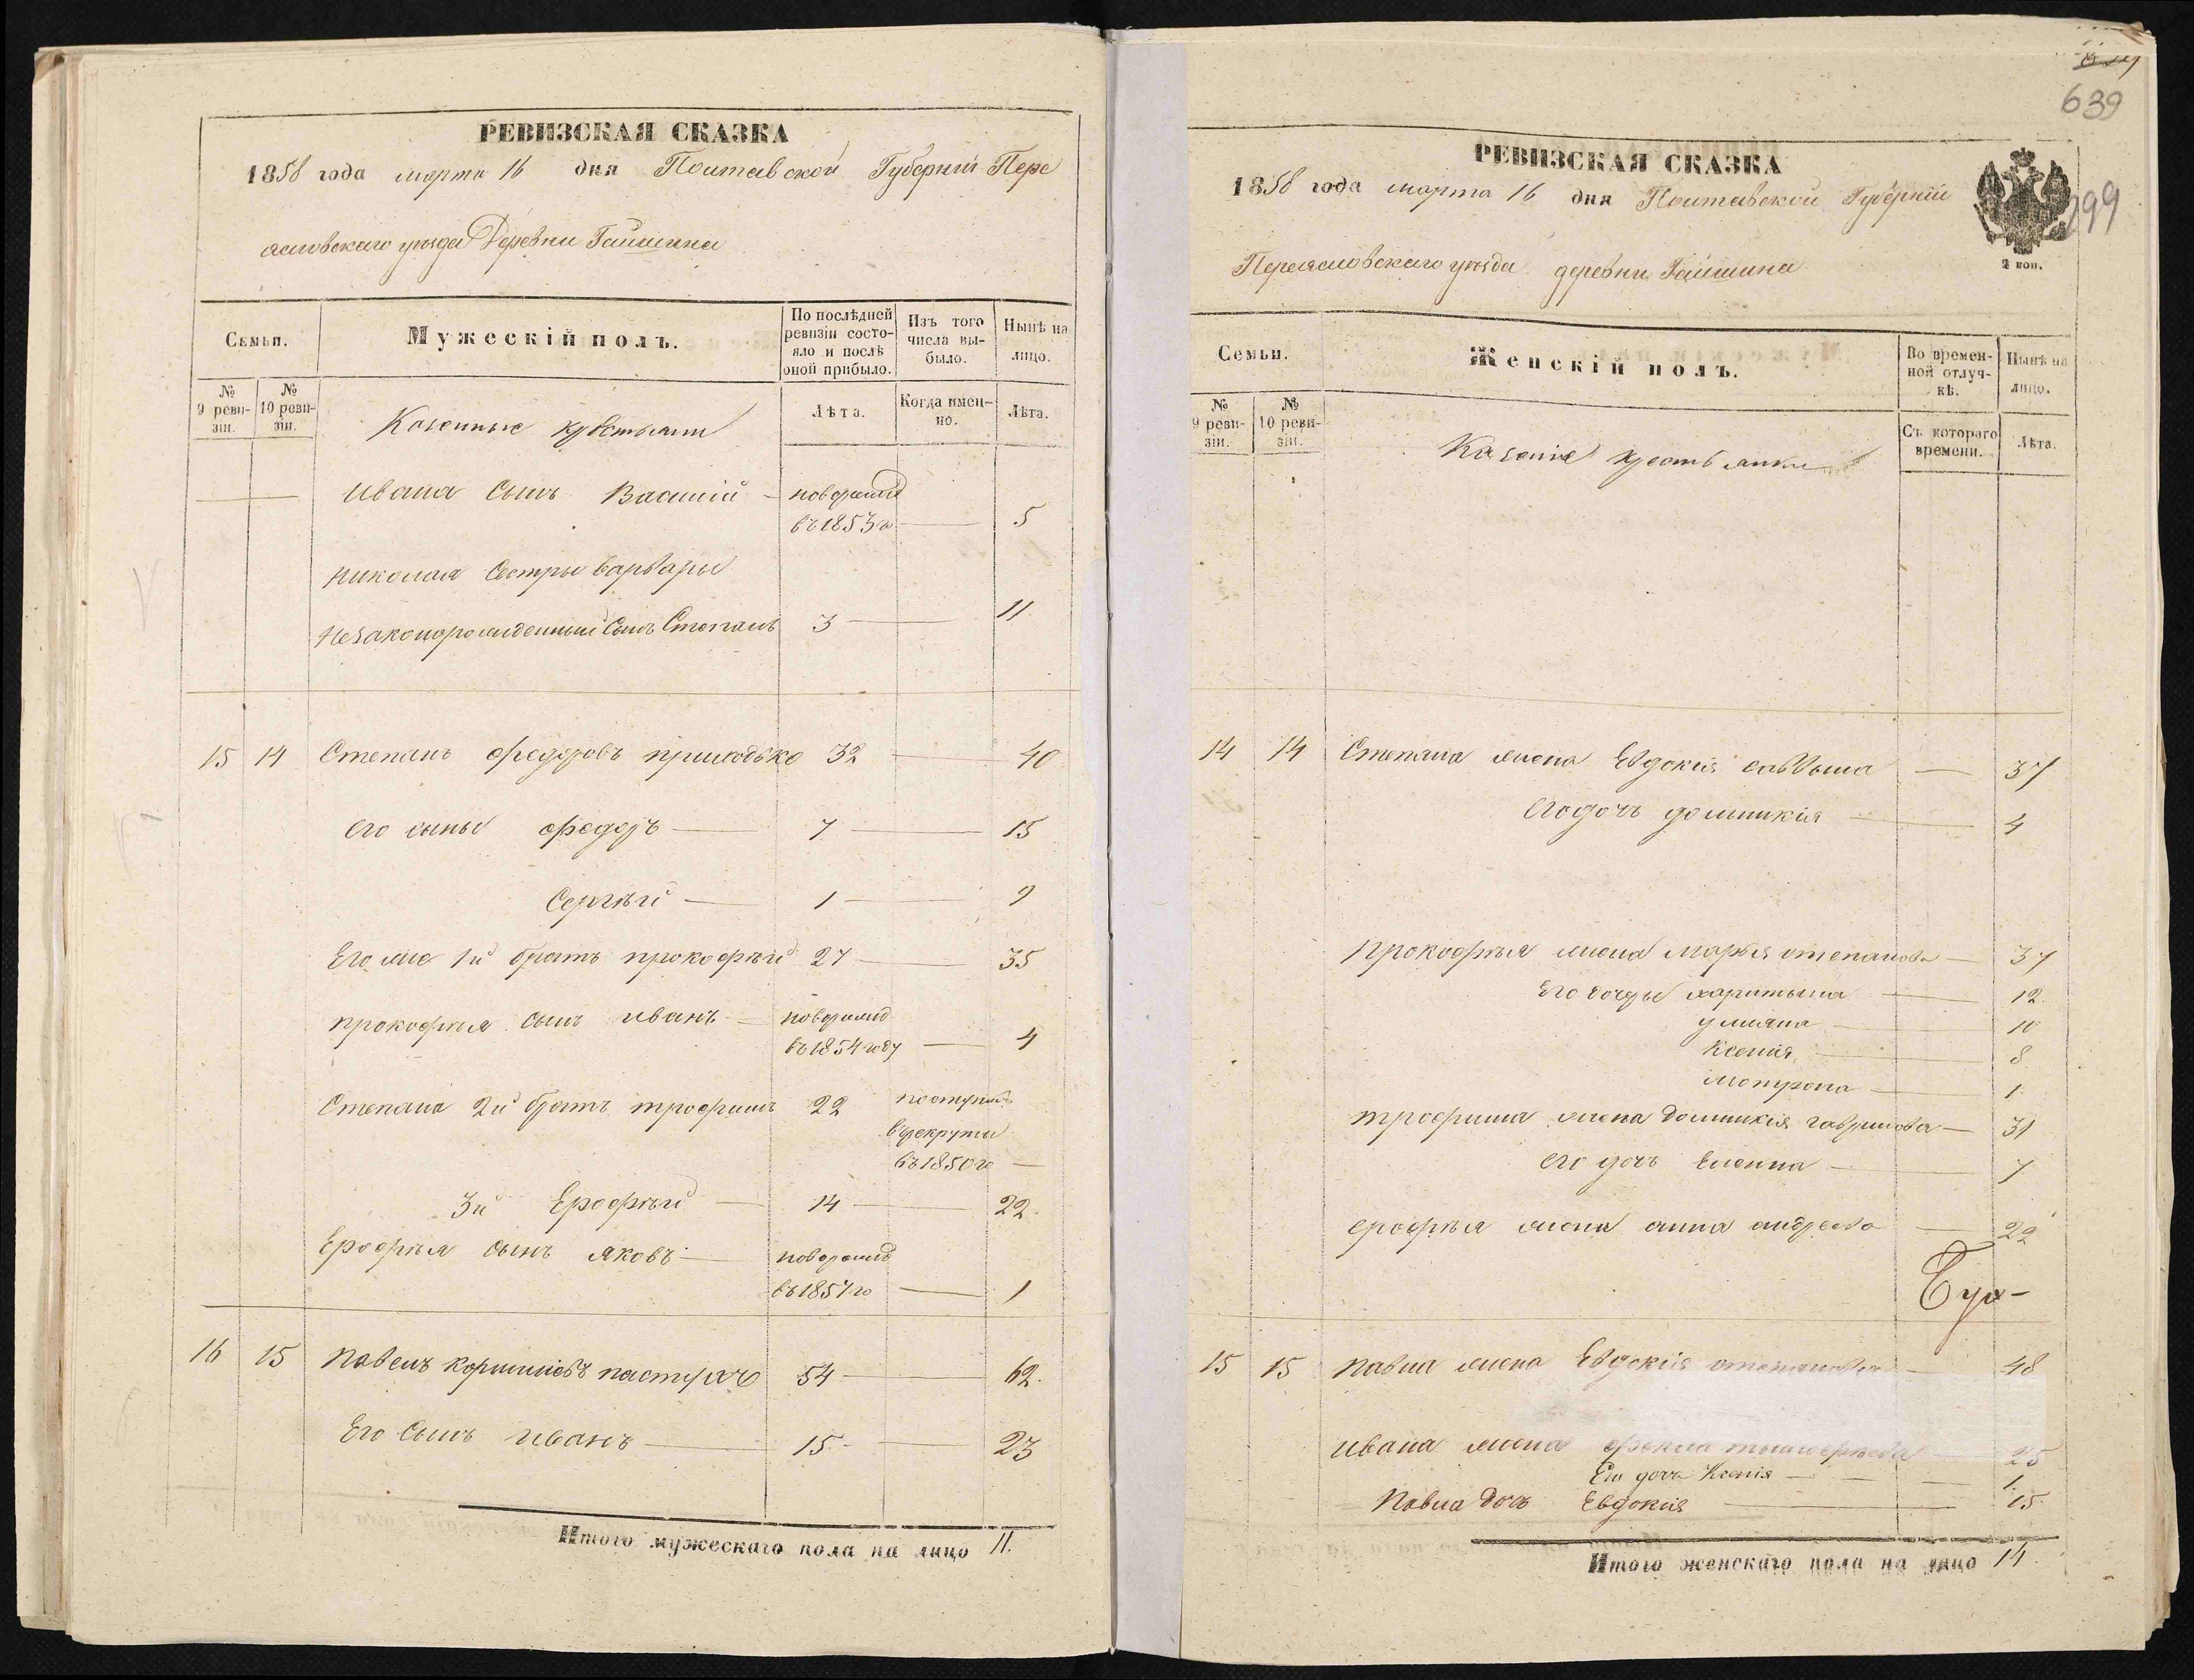 РЕВИЗСКАЯ СКАЗКА
1858 года марта 16 дня Полтавской Губерніи Пере
яславскаго уѣзда Деревни Гайшина
Семьи.
Мужескій полъ.
По послѣдней ревизіи состояло и послѣ оной прибыло.
Изъ того числа выбыло.
Нынѣ на лицо.
№ 9 ревизіи.
№ 10 ревизіи.
Казенные крестьяни
Лѣта.
Когда именно.
Лѣта.
Ивана Сынъ Василій новорожд
въ 1853 го 5
Николая Сестры Варвары
Незаконорожденный Сынъ Степанъ 3 11
15 14 Степанъ Федоровъ приходько 32 40
его сыны Федоръ 7 15
Сергѣй 1 9
Его же 1й братъ прокофѣй 27 35
прокофѣя сынъ иванъ новорожд
въ 1854 году 4
Степана 2й братъ трофимъ 22 поступилъ
врекруты
въ 1850 го
3й Ерофѣй 14 22
Ерофѣя сынъ яковъ новорожд
въ 1857 го 1
16 15 Павелъ Корнилиевъ 54 62.
Его Сынъ иванъ 15 23
Итого мужескаго пола на лицо 11.
639
299
РЕВИЗСКАЯ СКАЗКА
1858 года марта 16 дня Полтавской Губерніи
Переяславскаго уѣзда деревни Гайшина
2 коп.
Семьи.
Женскій полъ.
Во временной отлучкѣ.
Нынѣ на лицо.
№ 9 ревизіи.
№ 10 ревизіи.
Казеніе крестьянки
Съ котораго времени.
Лѣта.
14 14 Степана жена Евдокія саввына 37
его дочъ домникія 4
Прокофѣя жена марья степанова 37
Его дочры харитына 12
улияна 10
Ксения 8
мотрона 1
трофима жена домникія гаврилова 31
его дочъ Еленна 7
ерофѣя жена анна андреева 22
15 15 Павла жена Евдокія степанова 48
ивана жена фекла 25
Его дочъ Ксенія 1.
Павла дочъ Евдокия 15
Итого женскаго пола на лицо 14